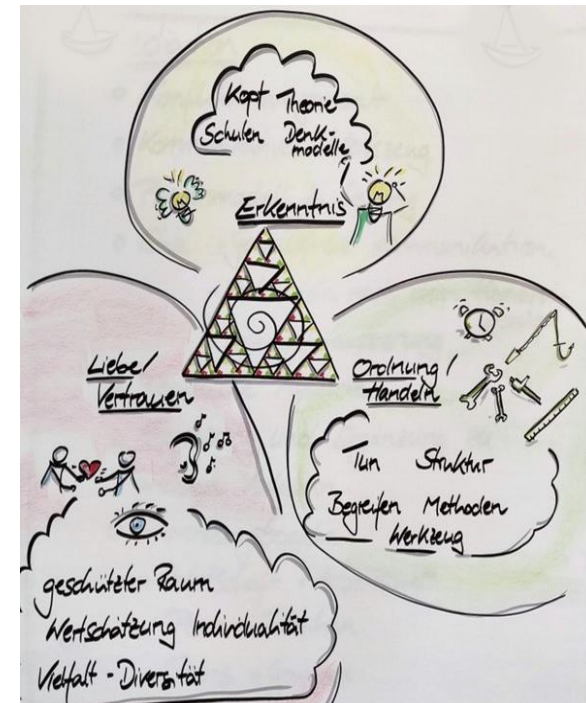 Kopf Theorie
Schulen Denk-
modelle
Erkenntnis
Liebe/
Vertrauen
Ordnung/
Handeln
Tun Struktur
Begreifen Methoden
Werkzeug
geschützter Raum
Wertschätzung Individualität
Vielfalt - Diversität